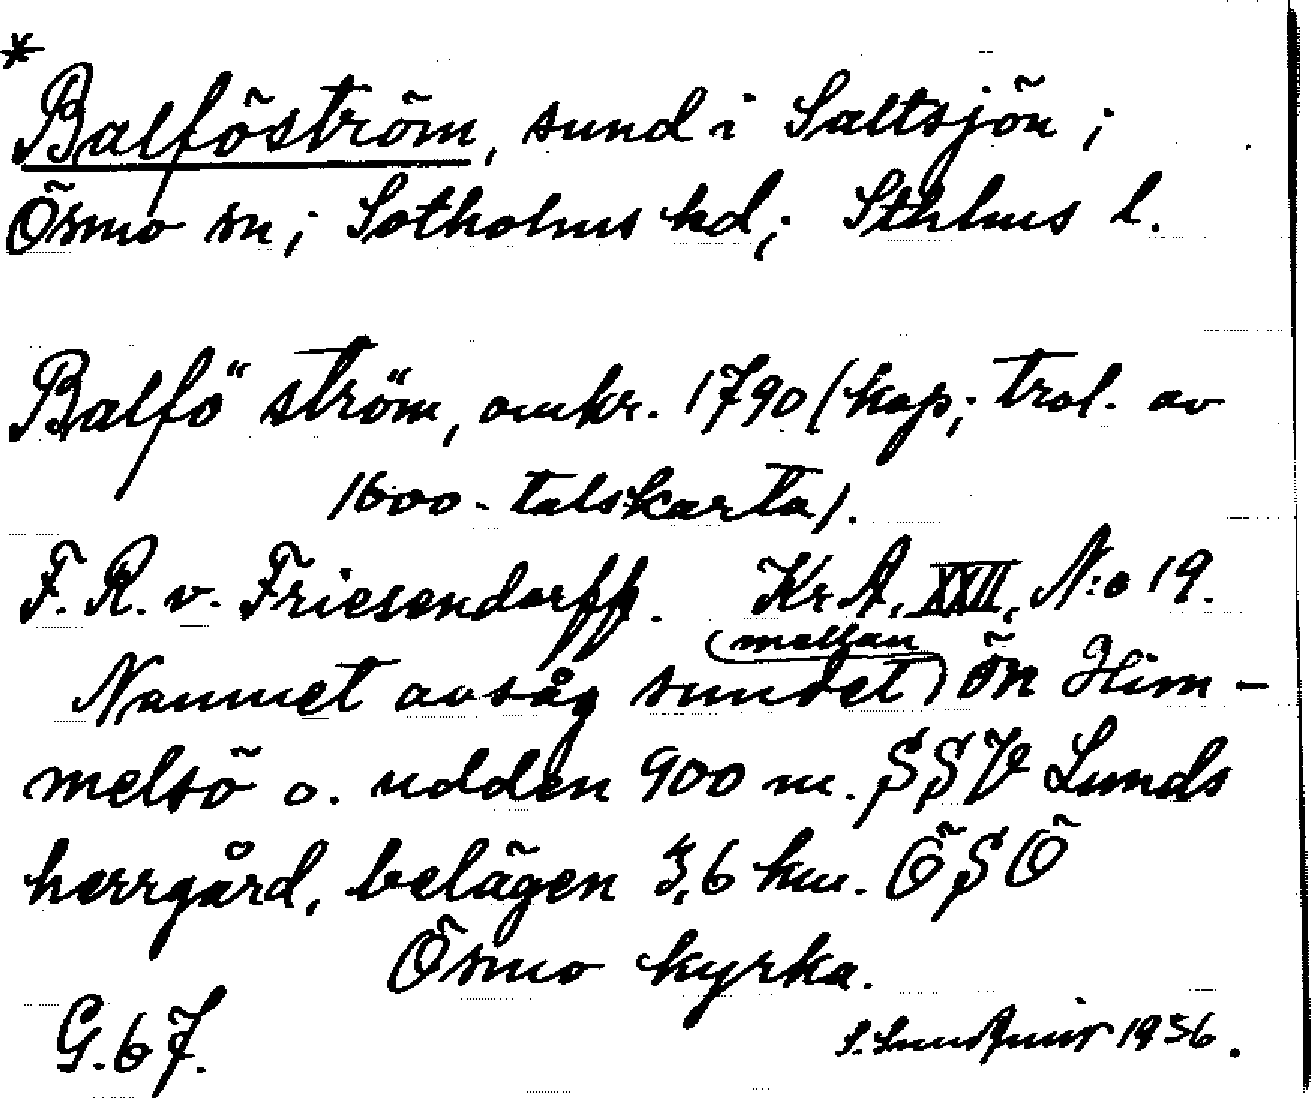 *
Balföström, sund i Saltsjön;
Ösmo sn; Sotholms hd; Sthlms l.
Balfö ström, omkr. 1790 (kop; trol. av
1600-talskarta).
F. R. v. Friesendorff. Kr A, XXII, N:o 19.
Namnet avsåg sundet (mellan) ön Him-
melsö o. udden 900 m. SSV Lunds
herrgård, belägen 3,6 km. ÖSÖ
Ösmo kyrka.
G. 67. 1936.